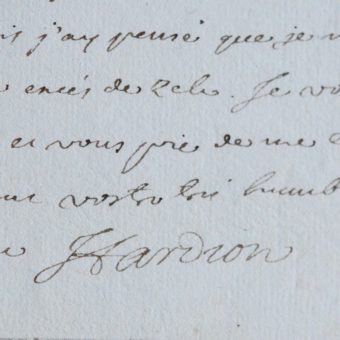 is j'ay pensé que je n
excés de zele. Je vo
et vous prie de me
vostre tres humb
Hardion